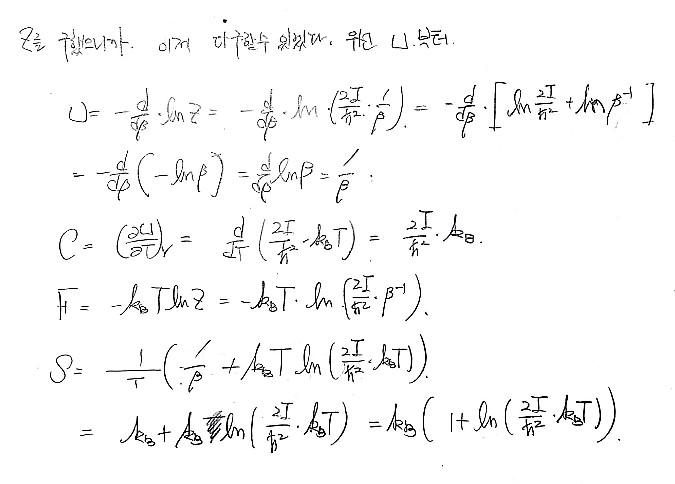 Z를 구했으니까. 이제 다구할수 있겠다. 우선 U.부터.
U = -d/dβ · ln Z = -d/dβ · ln · (2I/ħ² · 1/β). = -d/dβ · [ln 2I/ħ² + ln β⁻¹]
= -d/dβ (-ln β) = d/dβ ln β = 1/β.
C = (∂U/∂T)_V = d/dT (2I/ħ² · k_B T) = 2I/ħ² · k_B.
F = -k_B T ln Z = -k_B T · ln (2I/ħ² · β⁻¹).
S = 1/T (1/β + k_B T ln (2I/ħ² · k_B T)).
= k_B + k_B ln (2I/ħ² · k_B T) = k_B (1 + ln (2I/ħ² · k_B T)).